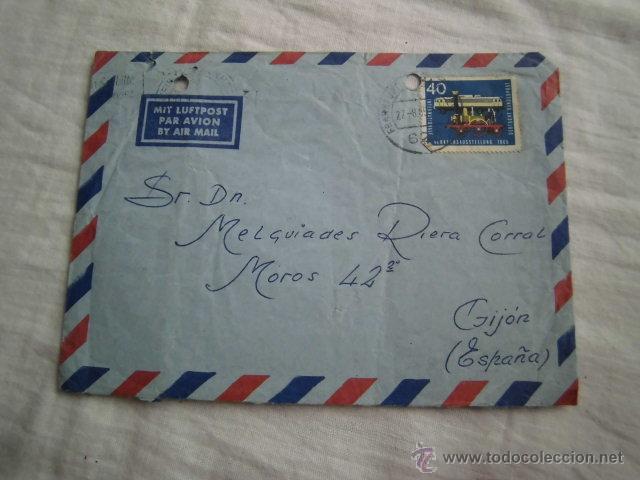 MIT LUFTPOST
PAR AVION
BY AIR MAIL
40
DEUTSCHE BUNDESPOST
VERKEHRSAUSSTELLUNG 1965
27.-8.
Sr. Dn.
Melquiades Riera Corral
Moros 42 2º
Gijón
(España)
www.todocoleccion.net